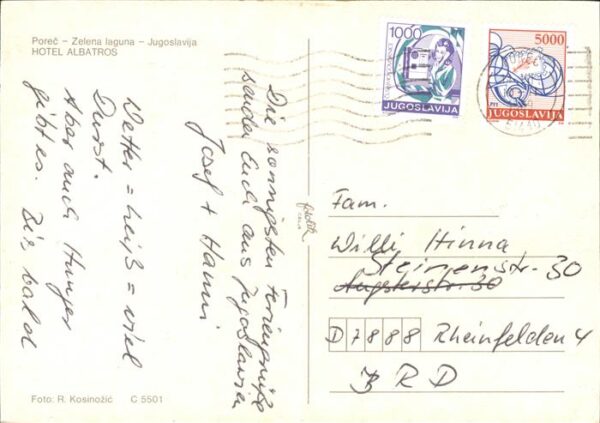 Poreč – Zelena laguna – Jugoslavija
HOTEL ALBATROS
1000
JUGOSLAVIJA
5000
JUGOSLAVIJA
Die sonnigsten Feriengrüße
sendet Euch aus Jugoslawien
Josef + Hanni
Wetter = heiß = viel
Durst.
Aber auch Hunger
gibt es. Bis bald
Fam.
Willi Hinna
Steinenstr. 30
Augsterstr. 30
D 7888 Rheinfelden 4
BRD
Foto: R. Kosinožić C 5501